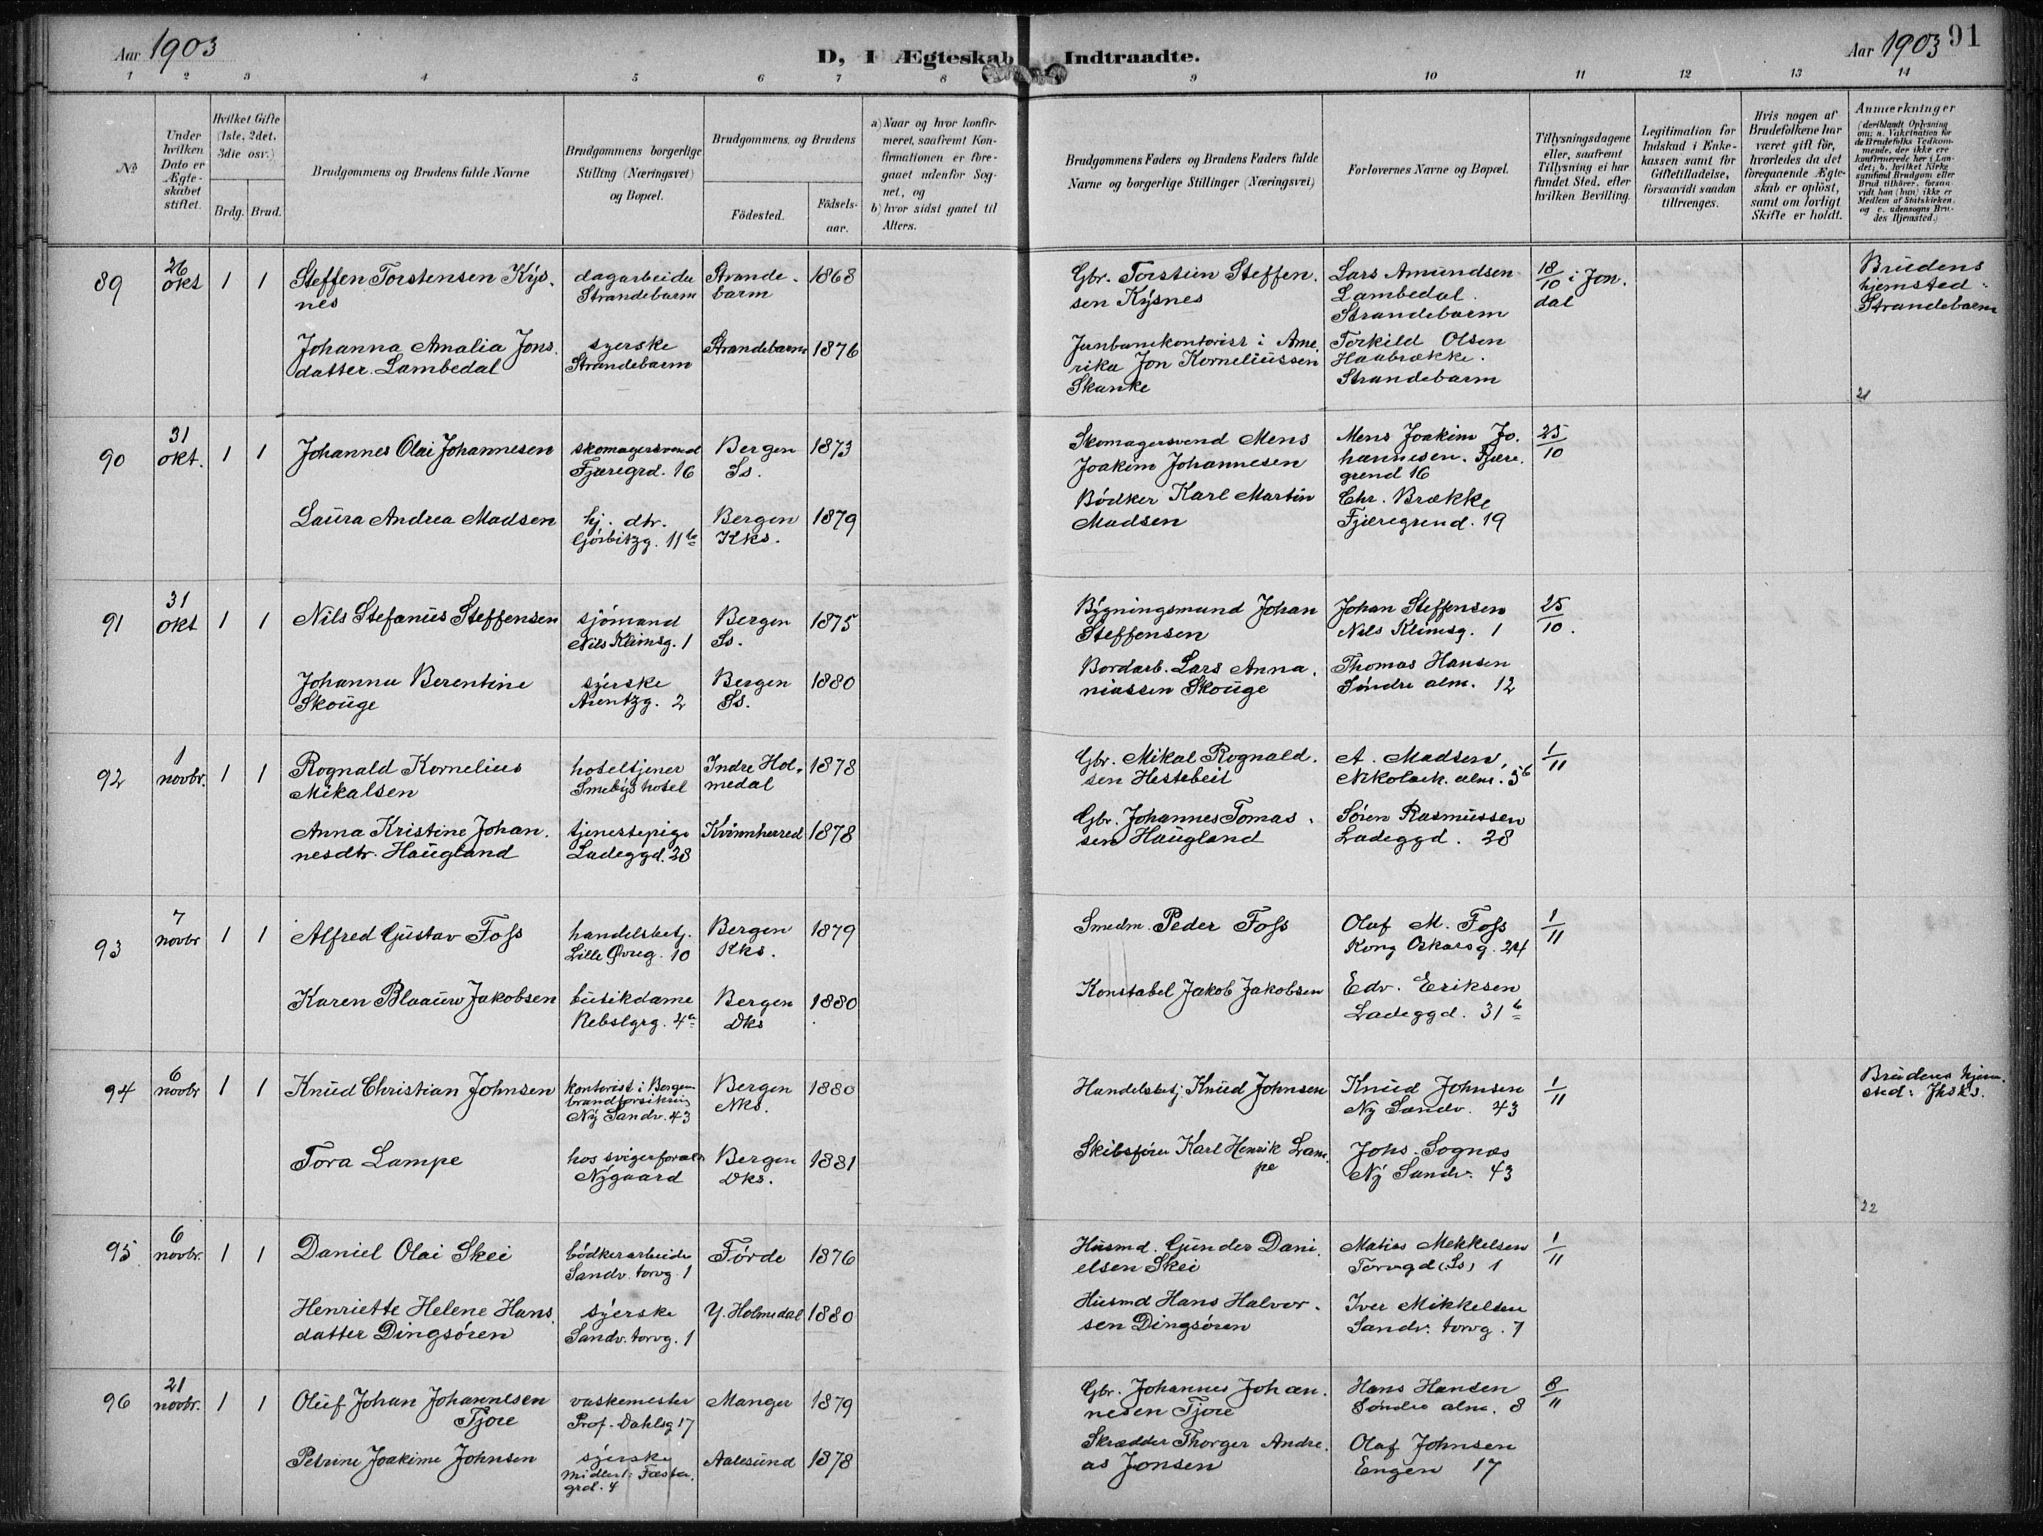 Aar 1903
D, I Ægteskab Indtraadte.
Aar 1903
91
1 2 3 4 5 6 7 8 9 10 11 12 13 14
No
Under hvilken Dato er Ægteskabet stiftet.
Hvilket Gifte (1ste, 2det, 3die osv.)
Brdg. Brud.
Brudgommens og Brudens fulde Navne
Brudgommens borgerlige Stilling (Næringsvei) og Bopæl.
Brudgommens og Brudens
Födested.
Födselsaar.
a) Naar og hvor konfirmeret, saafremt Konfirmationen er foregaaet udenfor Sognet, og
b) hvor sidst gaaet til Alters.
Brudgommens Faders og Brudens Faders fulde Navne og borgerlige Stillinger (Næringsvei)
Forlovernes Navne og Bopæl.
Tillysningsdagene eller, saafremt Tillysning ei har fundet Sted, efter hvilken Bevilling.
Legitimation for Indskud i Enkekassen samt for Giftetilladelse, forsaavidt saadan tiltrænges.
Hvis nogen af Brudefolkene har været gift før, hvorledes da det foregaaende Ægteskab er opløst, samt om lovligt Skifte er holdt.
Anmærkninger
(deriblandt Oplysning om: a. Vakcination for de Brudefolks Vedkommende, der ikke ere konfirmerede her i Landet; b. hvilket Kirkesamfund Brudgom eller Brud tilhører, forsaavidt han (hun) ikke er Medlem af Statskirken, og c. udensogns Brudes Hjemsted.)
89
26 okt
1 1
Steffen Torstensen Kys.
nes
dagarbeider
Strandebarm
Strande-
barm
1868
Gbr. Torstein Steffen.
sen Kysnes
Lars Amundsen
Lambedal.
Strandebarm
18/10 i Jon.
dal
Brudens
hjemsted
Strandebarm
Johanna Amalia Jons.
datter. Lambedal
syerske
Strandebarm
Strandebarm
1876
Junbanekontorist i Ame.
rika Jon Korneliussen
Skanke
Torkild Olsen
Haabrække.
Strandebarm
21
90
31 okt.
1 1
Johannes Olai Johannesen
skomagersvend
Fjæregrd. 16
Bergen
Ss.
1873
Skomagersvend Mens
Joakim Johannesen
Mens Joakim Jo.
hannesen. Fjære.
grend 16
25/10
Laura Andrea Madsen
hj. dtr.
Gjörbitzg. 11b
Bergen
Kks.
1879
Bödker Karl Martin
Madsen
Chr. Brække
Fjæregrend. 19
91
31 okt
1 1
Nils Stefanus Steffensen
sjömand
Nils Klimsg. 1
Bergen
Ss.
1875
Bygningsmand Johan
Steffensen
Johan Steffensen
Nils Klimsg. 1
25/10.
Johanna Berentine
Skouge
syerske
Arentzg. 2
Bergen
Ss.
1880
Bordarb. Lars Anna.
niassen Skouge
Thomas Hansen
Søndre alm. 12
92
1 novbr.
1 1
Rognald Kornelius
Mikalsen
hoteltjener
Smebys hotel
Indre Hol.
medal
1878
Gbr. Mikal Rognald.
sen Hestebeit
A. Madsen,
Nikolaik. alm. 5b
1/11
Anna Kristine Johan.
nesdtr. Haugland
tjenestepige
Ladeggd. 28
Kvinnherred
1878
Gbr. Johannes Tomas.
sen Haugland
Sören Rasmussen
Ladeggd. 28
93
7 novbr
1 1
Alfred Gustav Foss
handelsbetj.
Lille Øvreg. 10
Bergen
Kks.
1879
Smedm. Peder Foss
Olaf M. Foss
Kong Oskarsg. 24
1/11
Karen Blaauw Jakobsen
butikdame
Rebslgrg. 4a
Bergen
Dks
1880
Konstabel Jakob Jakobsen
Edv. Eriksen
Ladeggd. 31b
94
6 novbr
1 1
Knud Christian Johnsen
kontorist i Bergens
brandforsikring
Ny Sandv. 43
Bergen
Nks.
1880
Handelsbetj Knud Johnsen
Knud Johnsen
Ny Sandv. 43
1/11
Brudens hjem.
sted: Jhsks.
Tora Lampe
hos svigerforæld
Nygaard
Bergen
Dks.
1881
Skibsfører Karl Henrik Lam.
pe
Johs. Sognæs
Ny Sandv. 43
22
95
6 novbr.
1 1
Daniel Olai Skei
bödkerarbeider
Sandv. torvg. 1
Förde
1876
Husmd. Gunder Dani.
elsen Skei
Matias Mekkelsen
Torvgd (Ss) 1
1/11
Henriette Helene Hans.
datter Dingsören
syerske
Sandv. torvg. 1
Y. Holmedal
1880
Husmd Hans Halvor.
sen Dingsören
Iver Mikkelsen
Sandv. torvg. 7
96
21 novbr.
1 1
Oluf Johan Johannesen
Tjore
vaskemester
Prof. Dahlsg 17
Manger
1879
Gbr. Johannes Johan.
nesen Tjore
Hans Hansen
Söndre alm. 8
8/11
Petrine Joakime Johnsen
syerske
Midlert: Fæster.
grd. 4
Aalesund
1878
Skrædder Thorger Andre.
as Jonsen
Olaf Johnsen
Engen 17